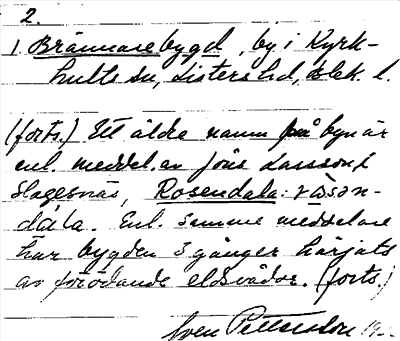 2.
1. Brännarebygd, by i Kyrk-
hults sn, Listers hd, Blek. l.
(forts.) Ett äldre namn på byn är
enl. meddel. av Jöns Larsson i
Slagesnäs, Rosendala: 
dála. Enl. samme meddelare
har bygden 3 gånger härjats
av förödande eldsvådor. (forts.)
Sven Pettersson 19